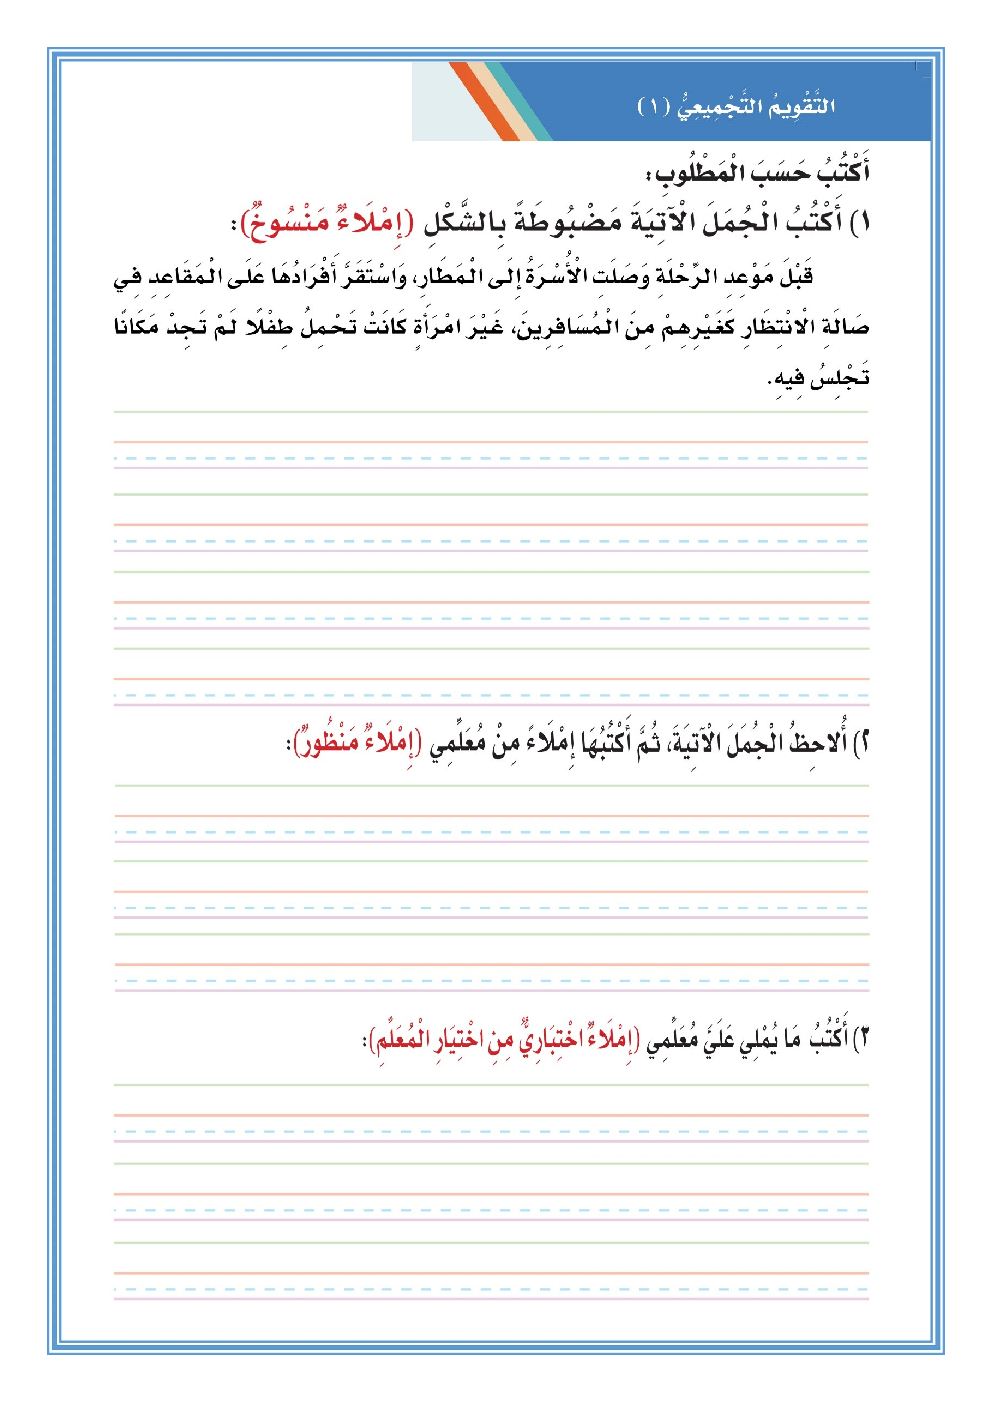 التَّقْوِيمُ التَّجْمِيعِيُّ (١)
أَكْتُبُ حَسَبَ الْمَطْلُوبِ:
١) أَكْتُبُ الْجُمَلَ الْآتِيَةَ مَضْبُوطَةً بِالشَّكْلِ (إِمْلَاءٌ مَنْسُوخٌ):
قَبْلَ مَوْعِدِ الرِّحْلَةِ وَصَلَتِ الْأُسْرَةُ إِلَى الْمَطَارِ، وَاسْتَقَرَّ أَفْرَادُهَا عَلَى الْمَقَاعِدِ فِي
صَالَةِ الْانْتِظَارِ كَغَيْرِهِمْ مِنَ الْمُسَافِرِينَ، غَيْرَ امْرَأَةٍ كَانَتْ تَحْمِلُ طِفْلًا لَمْ تَجِدْ مَكَانًا
تَجْلِسُ فِيهِ.
٢) أُلاحِظُ الْجُمَلَ الْآتِيَةَ، ثُمَّ أَكْتُبُهَا إِمْلَاءً مِنْ مُعَلِّمِي (إِمْلَاءٌ مَنْظُورٌ):
٣) أَكْتُبُ مَا يُمْلِي عَلَيَّ مُعَلِّمِي (إِمْلَاءٌ اخْتِبَارِيٌّ مِنِ اخْتِيَارِ الْمُعَلِّمِ):